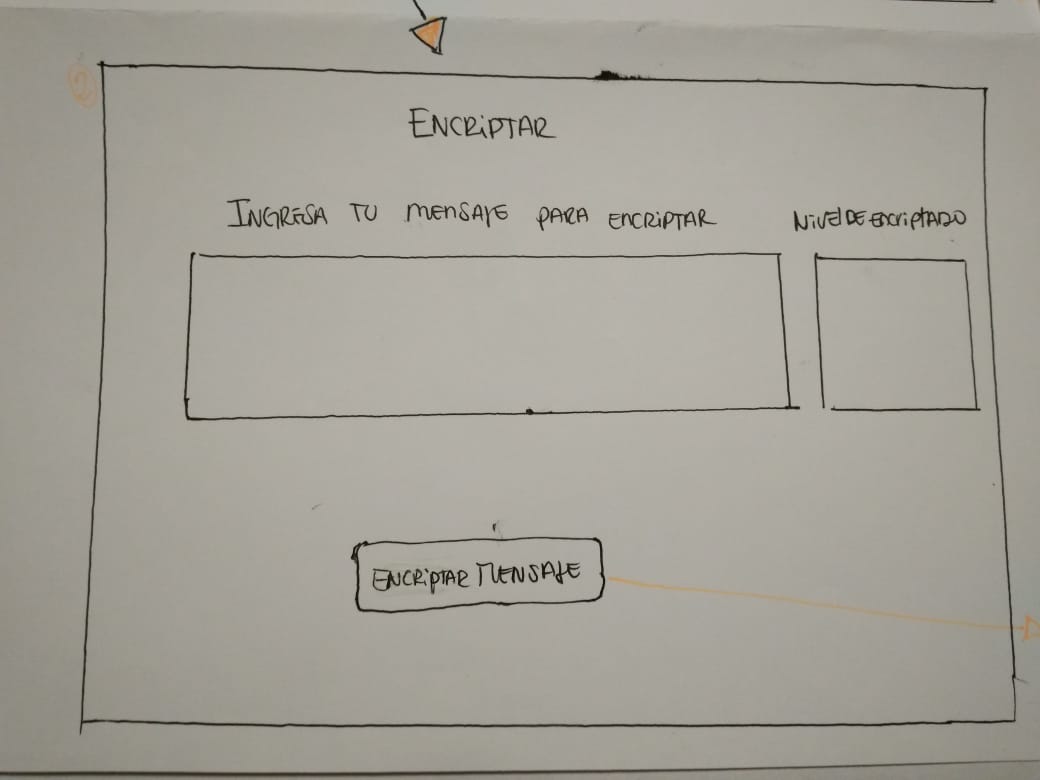 2
ENCRIPTAR
INGRESA TU MENSAJE PARA ENCRIPTAR
NIVEL DE ENCRIPTADO
ENCRIPTAR MENSAJE